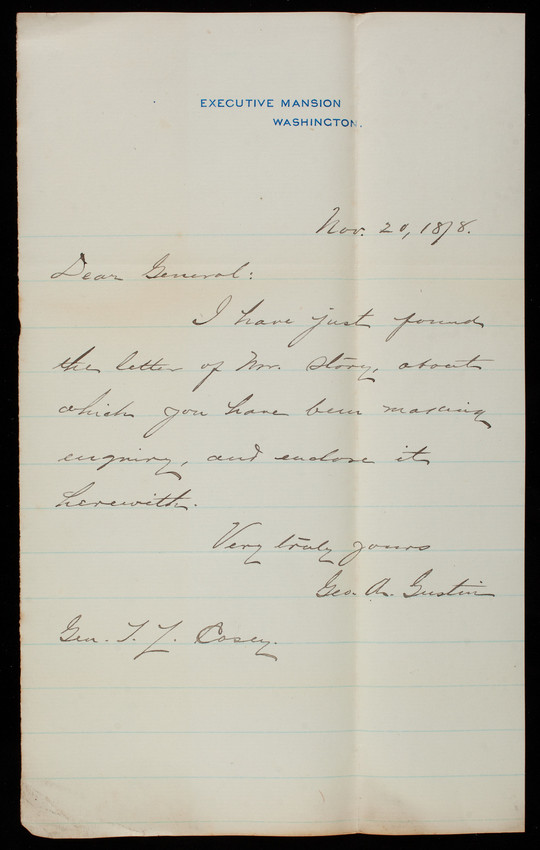 EXECUTIVE MANSION
WASHINGTON.
Nov. 20, 1878.
Dear General:
I have just found
the letter of Mr. Story, about
which you have been making
enquiry, and enclose it
herewith.
Very truly yours
Geo. A. Gustin
Gen. T. L. Casey.